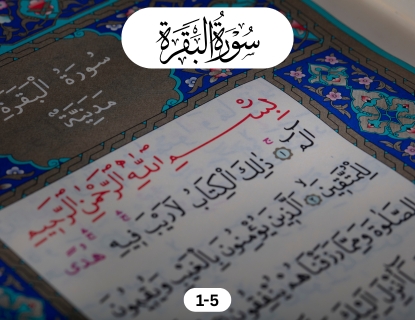 سُورَةُ الْبَقَرَةِ
سُورَةُ الْبَقَرَةِ
مَدِينَةٌ
بِسْمِ اللَّهِ الرَّحْمَٰنِ الرَّحِيمِ
الم ذَٰلِكَ الْكِتَابُ لَا رَيْبَ فِيهِ هُدًى
لِلْمُتَّقِينَ الَّذِينَ يُؤْمِنُونَ بِالْغَيْبِ وَيُقِيمُونَ
الصَّلَوٰةَ وَمِمَّا رَزَقْنَاهُمْ يُنْفِقُونَ
أُنْزِلَ إِلَيْكَ
1-5